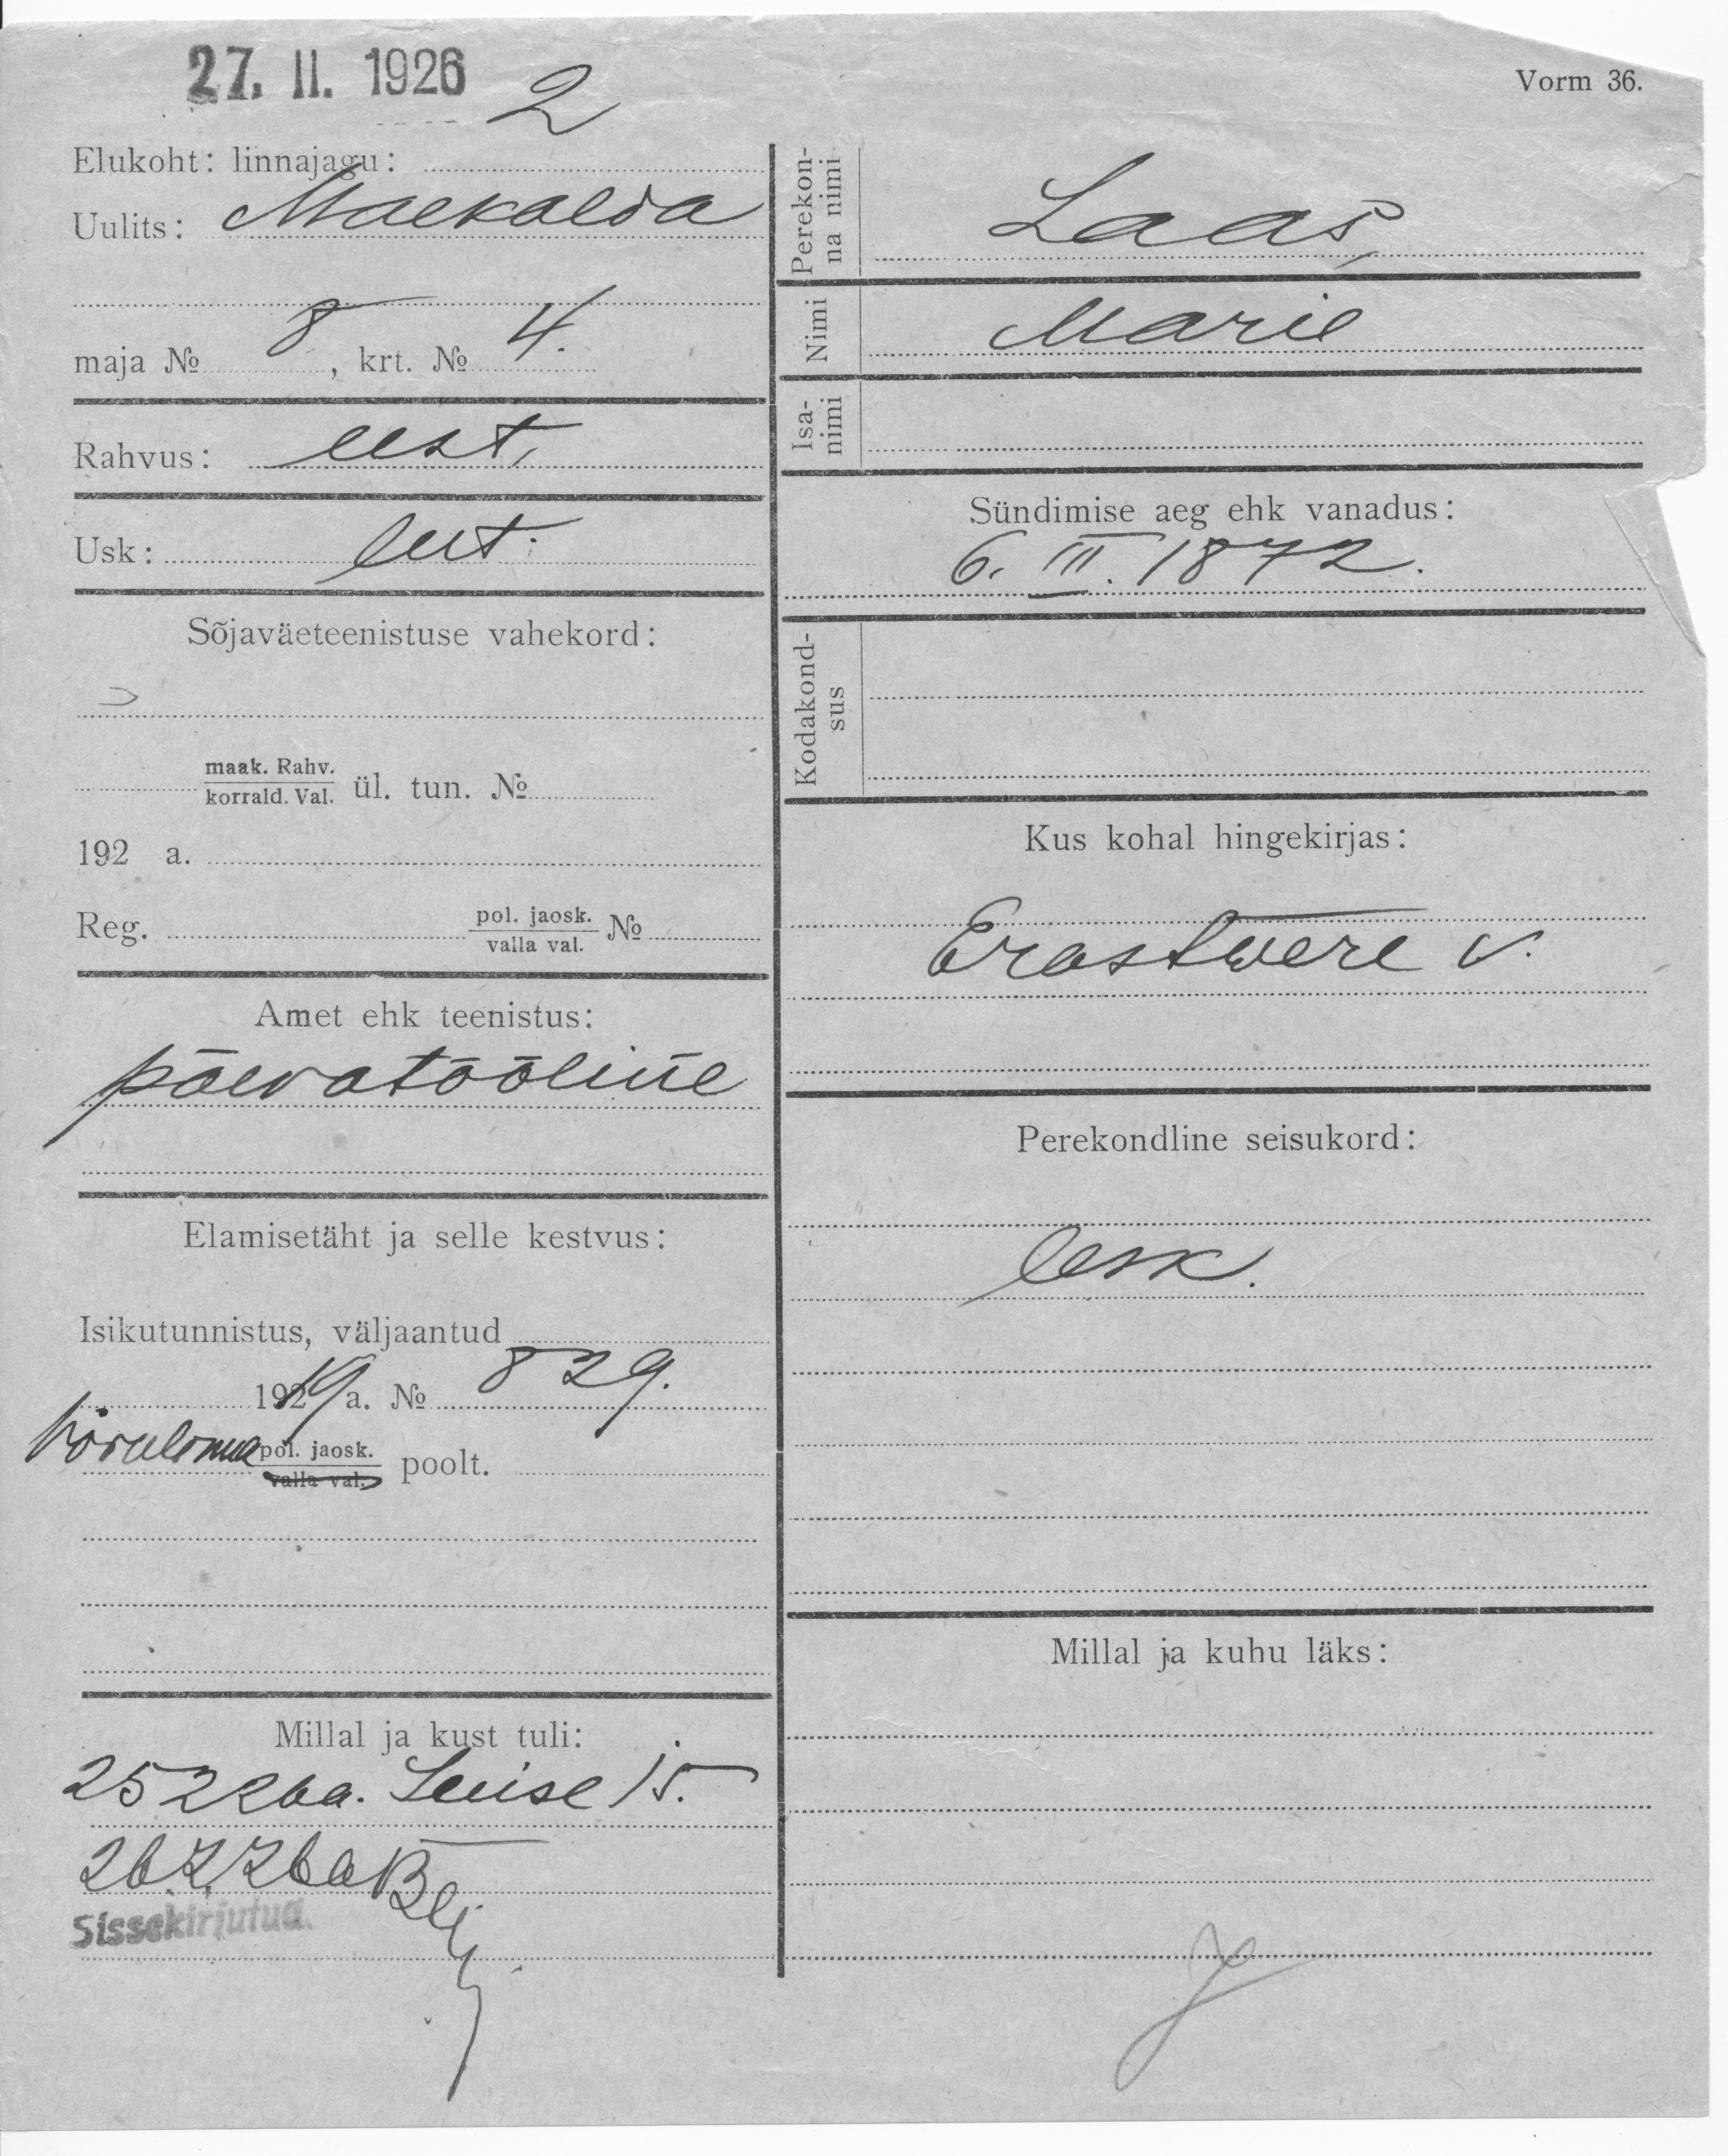 27. II. 1926
2
Vorm 36.
Elukoht: linnajagu:
Uulits: Maekalda
maja № 8, krt. № 4.
Rahvus: eest.
Usk: lut.
Sõjaväeteenistuse vahekord:
maak. Rahv.
korrald. Val. ül. tun. №
192 a.
Reg. pol. jaosk. №
valla val.
Amet ehk teenistus:
päevatööline
Elamisetäht ja selle kestvus:
Isikutunnistus, väljaantud
19219 a. № 829.
Võrulinna pol. jaosk. poolt.
valla val.
Millal ja kust tuli:
25 2 26a. Leeise 15.
26.2.26a
Sissekirjutud.
Perekon-
na nimi Laas,
Nimi Marie
Isa-
nimi
Sündimise aeg ehk vanadus:
6. III. 1872.
Kodakond-
sus
Kus kohal hingekirjas:
Erastwere v.
Perekondline seisukord:
lesk.
Millal ja kuhu läks: